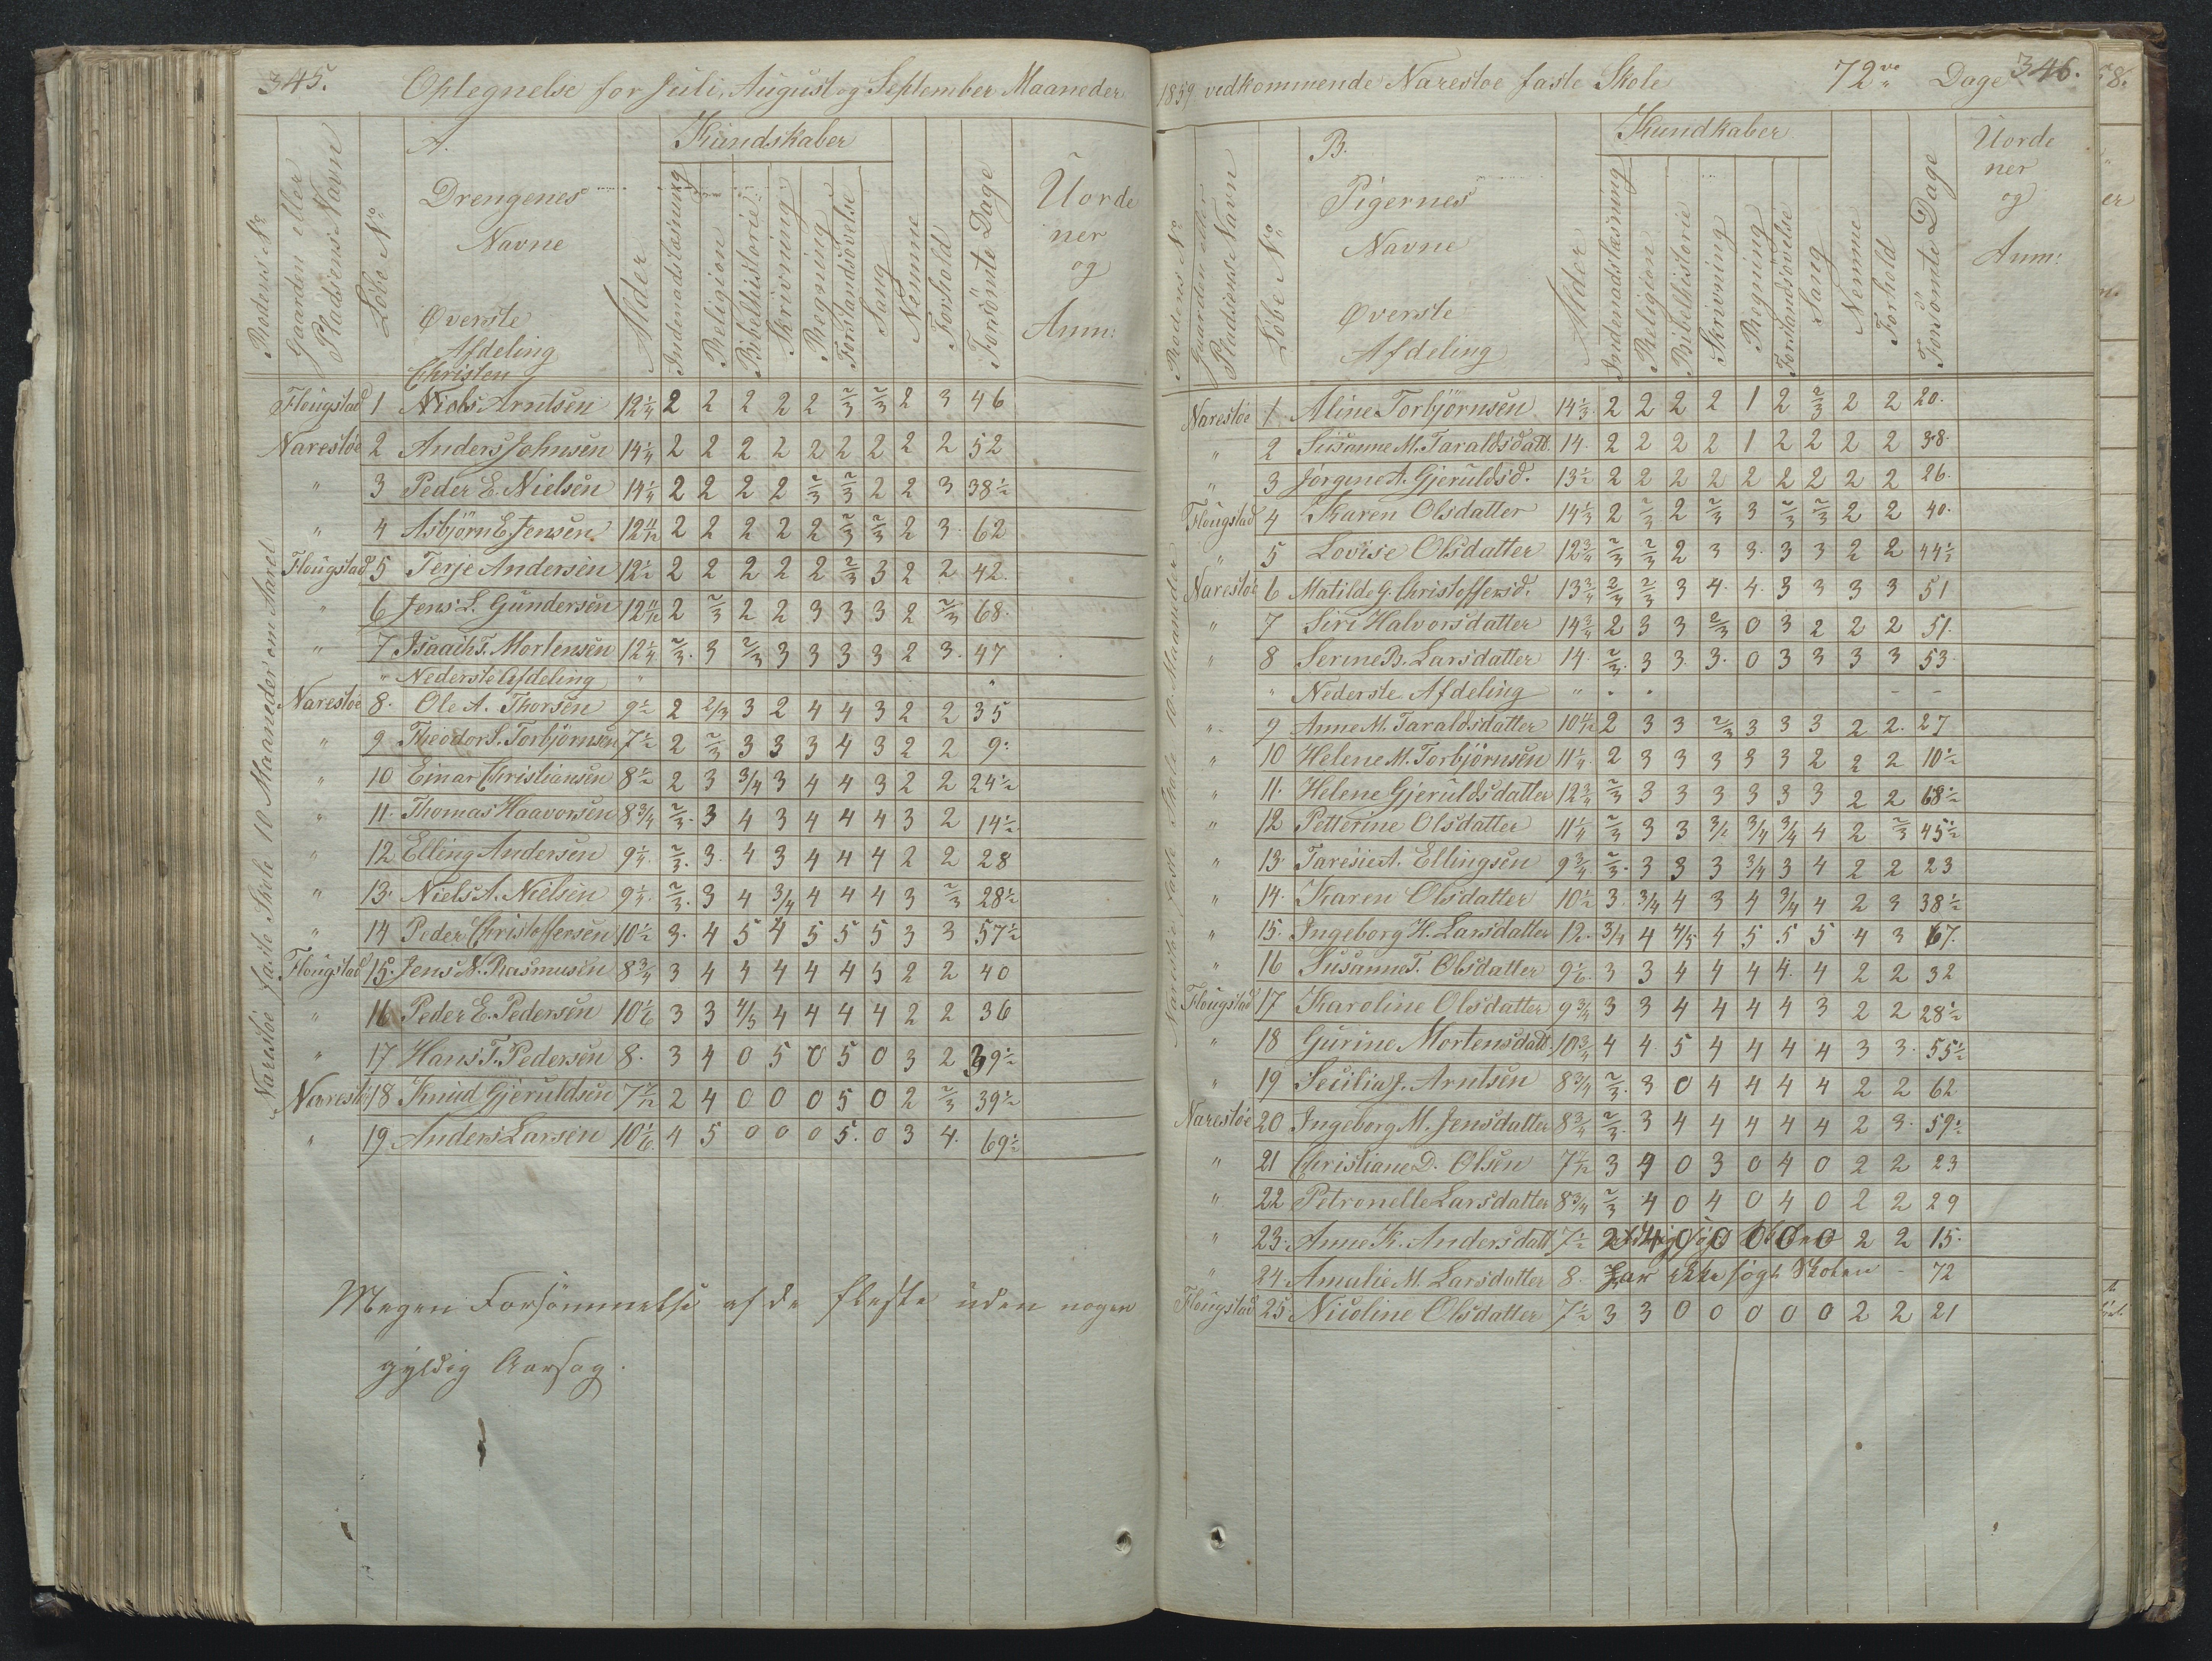 345.
Optegnelse for Juli, August og September Maaneder
A.
Kundskaber
Rodens No
Gaarden eller Pladsens Navn
Løbe No
Drengenes Navne
Øverste Afdeling
Alder
Indenadslæsning
Religion
Bibelhistorie
Skrivning
Regning
Forstandsövelse
Sang
Nemme
Forhold
Forsömte Dage
Uorde
ner
og
Anm:
Narestöe faste Skole 10 Maaneder om Aaret
Christen
Flougstad 1 Niels Arntsen 12 1/4 2 2 2 2 2 2/3 2/3 2 3 46
Narestöe 2 Anders Johnsen 14 1/4 2 2 2 2 2 2 2 2 2 52
" 3 Peder E. Nielsen 14 1/4 2 2 2 2 2/3 2/3 2 2 3 38 1/2
" 4 Asbjörn E Jensen 12 11/12 2 2 2 2 2 2/3 2/3 2 3 62
Flougstad 5 Terje Andersen 12 1/2 2 2 2 2 2 2/3 3 2 2 42.
" 6 Jens L. Gundersen 12 11/12 2 2/3 2 2 3 3 3 2 2/3 68.
" 7 Isaach T. Mortensen 12 1/4 2/3. 3 2/3 3 3 3 3 2 3. 47
" Nederste Afdeling " "
Narestöe 8. Ole A. Thorsen 9 1/2 2 2/3 3 2 4 4 3 2 2 35
" 9 Theodor S. Torbjörnsen 7 1/2 2 2/3 3 3 3 4 3 2 2 9.
" 10 Einar Christiansen 8 1/2 2 3 3/4 3 4 4 3 2 2 24 1/2
" 11. Thomas Haavorsen 8 3/4 2/3. 3 4 3 4 4 4 3 2 14 1/2
" 12 Elling Andersen 9 1/4. 2/3. 3. 4 3 4 4 4 2 2 28
" 13. Niels A. Nielsen 9 1/4. 2/3. 3 4 3/4 4 4 4 3 2/3 28 1/2
" 14 Peder Christoffersen 10 1/2 3. 4 5 4 5 5 5 3 3 57 1/2
Flougstad 15. Jens N. Rasmusen 8 3/4 3 4 4 4 4 4 5 2 2 40
" 16 Peder E. Pedersen 10 1/6 3 3 4/5 4 4 4 4 2 2 36
" 17 Hans T. Pedersen 8. 3 4 0 5 0 5 0 3 2 39 1/2
Narestöe 18 Knud Gjeruldsen 7 7/12 2 4 0 0 0 5 0 2 2/3 39 1/2
" 19 Anders Larsen 10 1/6. 4 5 0 0 0 5. 0 3 4. 69 1/2
Megen Forsømmelse af de fleste uden nogen
gyldig Aarsag.
346.
1859 vedkommende Narestöe faste Skole 72 Dage
B.
Kundkaber
Rodens No
Gaarden eller Pladsens Navn
Løbe No
Pigernes Navne
Øverste Afdeling
Alder
Indenadslæsning
Religion
Bibelhistorie
Skrivning
Regning
Forstandsövelse
Sang
Nemme
Forhold
Forsömte Dage
Uorde
ner
og
Anm:
Narestöe faste Skole 10 Maaneder
Narestöe 1 Aline Torbjörnsen 14 1/3 2 2 2 2 1 2 2/3 2 2 20.
" 2 Susanne M. Taraldsdatt. 14. 2 2 2 2 1 2 2 2 2 38.
" 3 Jörgine A. Gjeruldsd. 13 1/2 2 2 2 2 2 2 2 2 2 26.
Flougstad 4 Karen Olsdatter 14 1/3 2 2/3 2 2/3 3 2/3 2/3 2 2 40.
" 5 Lovise Olsdatter 12 3/4 2/3 2/3 2 3 3. 3 3 2 2 44 1/2
Narestöe 6 Matilde G. Christoffersd. 13 3/4 2/3 2/3 3 4. 4. 3 3 3 3 51
" 7 Siri Halvorsdatter 14 3/4 2 3 3 2/3 0 3 2 2 2 51.
" 8 Serine B. Larsdatter 14. 2/3. 3 3. 3. 0 3 3 3 3 53.
" Nederste Afdeling "
" 9 Anne M. Taraldsdatter 10 4/12 2 3 3 2/3 3 3 3 2 2. 27
" 10 Helene M. Torbjörnsen 11 1/4. 2 3 3 3 3 3 2 2 2 10 1/2
" 11. Helene Gjeruldsdatter 12 3/4 2/3 3 3 3 3 3 3 2 2 68 1/2
" 12 Petterine Olsdatter 11 1/4 2/3 3 3 3/2 3/4 3/4 4 2 2/3 45 1/2
" 13. Taresie A. Ellingsen 9 3/4 2/3. 3 3 3 3/4 3 4 2 2 23
" 14. Karen Olsdatter 10 1/2 3. 3/4 4 3 4 3/4 4 2 3 38 1/2
" 15. Ingeborg H. Larsdatter 12. 3/4 4 4/5 4 5 5 5 4 3 67.
" 16 Susanne T. Olsdatter 9 1/6. 3 3 4 4 4 4. 4 2 2 32
Flougstad 17 Karoline Olsdatter 9 3/4 3 3 4 4 4 4 3 2 2 28 1/2
" 18 Gurine Mortensdatt. 10 3/4 4 4. 5 4 4 4 4 3 3. 55 1/2
" 19 Secilia J. Arntsen 8 3/4 2/3. 3 0 4 4 4 4 2 2 62
Narestöe 20 Ingeborg M. Jensdatter 8 3/4 2/3. 3 4 4 4 4 4 2 3. 59 1/2
" 21 Christiane D. Olsen 7 11/12 3 4 0 3 0 4 0 2 2 23
" 22 Petronelle Larsdatter 8 3/4 2/3 4 0 4 0 4 0 2 2 29
" 23. Anne K. Andersdatt 7 1/2 2 4 0 0 0 0 0 2 2 15.
" 24. Amalie M. Larsdatter 8. Har ikke søgt Skolen - 72
Flougstad 25. Nicoline Olsdatter 7 1/2 3 3 0 0 0 0 0 2 2 21